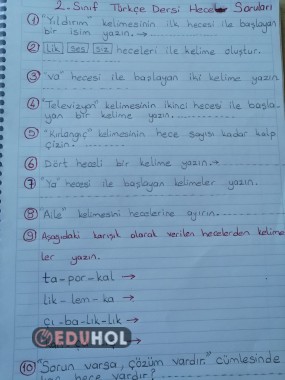 2. Sınıf Türkçe Dersi Hece Soruları
① "Yıldırım" kelimesinin ilk hecesi ile başlayan
bir isim yazın. →
② lik ses siz heceleri ile kelime oluştur.
③ "va" hecesi ile başlayan iki kelime yazın
④ "Televizyon" kelimesinin ikinci hecesi ile başla-
yan bir kelime yazın.
⑤ "Kırlangıç" kelimesinin hece sayısı kadar kalp
çizin.
⑥ Dört heceli bir kelime yazın. →
⑦ "Ya" hecesi ile başlayan kelimeler yazın.
⑧ "Aile" kelimesini hecelerine ayırın.
⑨ Aşağıdaki karışık olarak verilen hecelerden kelime
ler yazın.
ta-por-kal →
lik-lem-ka →
çı-ba-lık-lık →
EDUHOL
⑩ "Sorun varsa, çözüm vardır." cümlesinde
hece vardır?